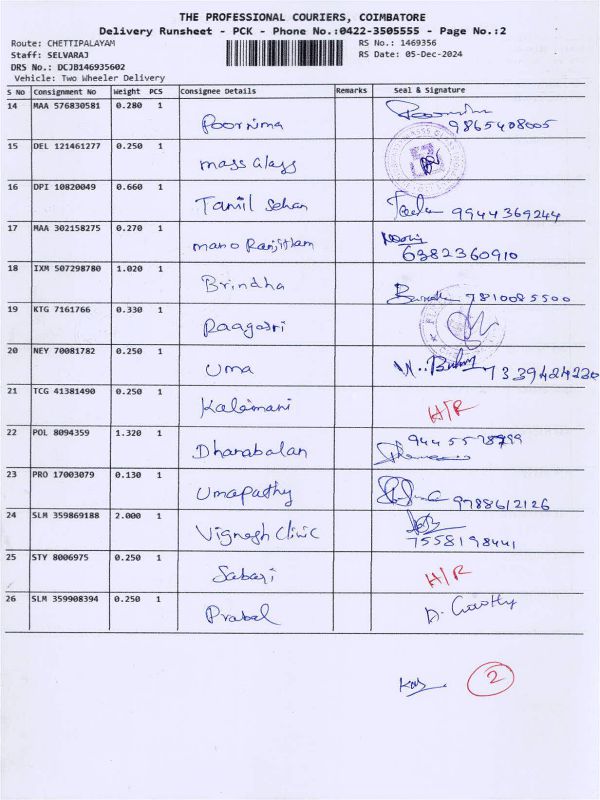 THE PROFESSIONAL COURIERS, COIMBATORE
Delivery Runsheet - PCK - Phone No.:0422-3505555 - Page No.:2
Route: CHETTIPALAYAM RS No.: 1469356
Staff: SELVARAJ RS Date: 05-Dec-2024
DRS No.: DCJB146935602
Vehicle: Two Wheeler Delivery
S No Consignment No Weight PCS Consignee Details Remarks Seal & Signature
14 MAA 576830581 0.280 1 Poornima 9865408005
15 DEL 121461277 0.250 1 mass Glass
16 DPI 10820049 0.660 1 Tamil Selvan 9944369244
17 MAA 302158275 0.270 1 mano Ranjitham 6382360910
18 IXM 507298780 1.020 1 Brindha 7810085500
19 KTG 7161766 0.330 1
20 NEY 70081782 0.250 1 uma
21 TCG 41381490 0.250 1 Kalaimani H/R
22 POL 8094359 1.320 1 Dhanabalan
23 PRO 17003079 0.130 1 umapathy 9788612126
24 SLM 359869188 2.000 1 Vignesh Clinic 7558198441
25 STY 8006975 0.250 1 Sabari H/R
26 SLM 359908394 0.250 1 Prabal
2